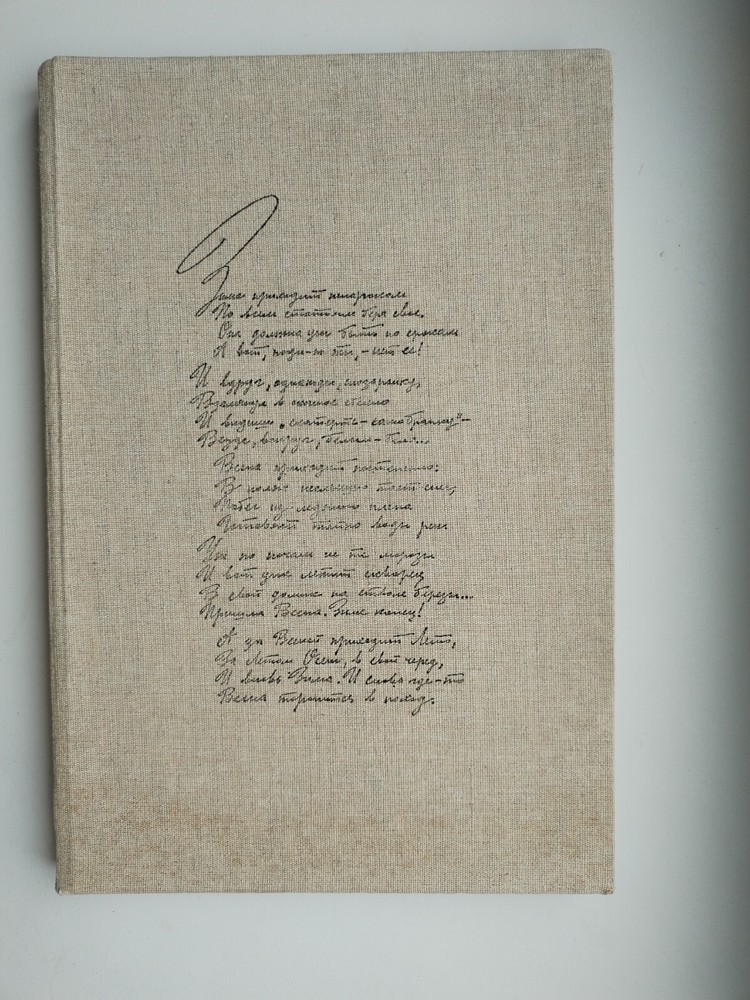 Зима приходит ненароком
По всем статьям беря свое.
Она должна уж быть по срокам
А вот, поди-ж ты, - нет ее!
И вдруг, однажды, спозаранку,
Взглянув в оконное стекло
И видишь „скатерть-самобранку"-
Везде, вокруг, белым-бело...
Весна приходит постепенно:
В полях неслышно тает снег,
Побег из ледяного плена
Готовят тайно воды рек
Уж по ночам не те морозы
И вот уже летит скворец
В свой домик на стволе березы...
Пришла Весна. Зиме конец!
А за Весной приходит Лето,
За Летом Осень, в свой черед,
И вновь Зима. И снова где-то
Весна торопится в поход.